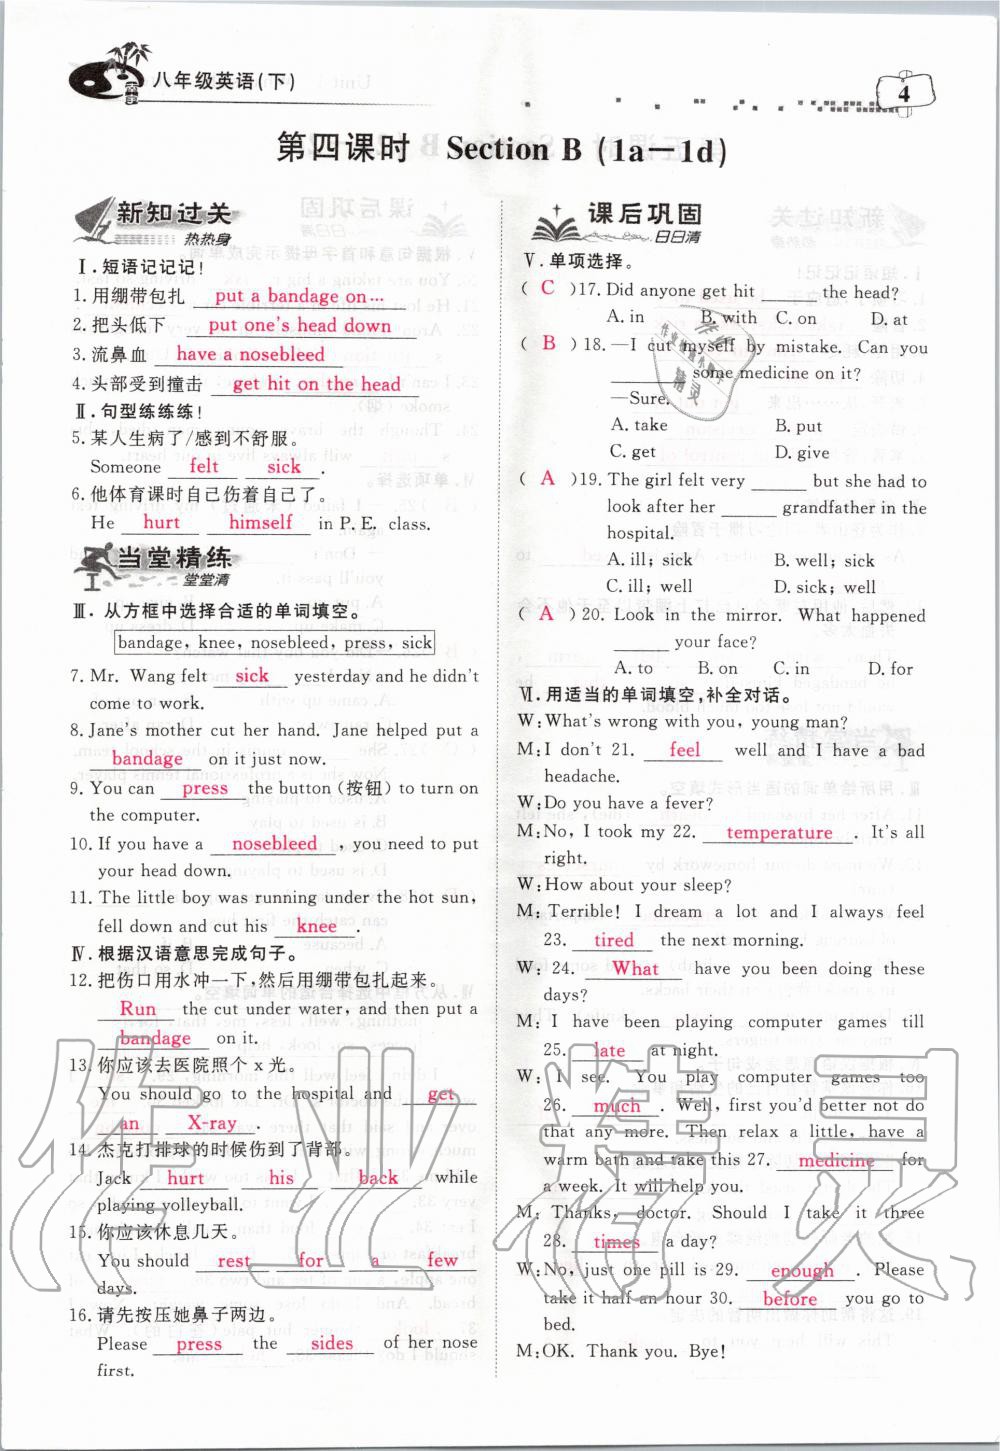 八年级英语(下)
4
第四课时 Section B (1a—1d)
新知过关
热热身
Ⅰ.短语记记记!
1.用绷带包扎 put a bandage on…
2.把头低下 put one's head down
3.流鼻血 have a nosebleed
4.头部受到撞击 get hit on the head
Ⅱ.句型练练练!
5.某人生病了/感到不舒服。
Someone felt sick .
6.他体育课时自己伤着自己了。
He hurt himself in P. E. class.
当堂精练
堂堂清
Ⅲ.从方框中选择合适的单词填空。
bandage, knee, nosebleed, press, sick
7. Mr. Wang felt sick yesterday and he didn't
come to work.
8. Jane's mother cut her hand. Jane helped put a
bandage on it just now.
9. You can press the button(按钮) to turn on
the computer.
10. If you have a nosebleed , you need to put
your head down.
11. The little boy was running under the hot sun,
fell down and cut his knee .
Ⅳ.根据汉语意思完成句子。
12.把伤口用水冲一下,然后用绷带包扎起来。
Run the cut under water, and then put a
bandage on it.
13.你应该去医院照个 x 光。
You should go to the hospital and get
an X-ray .
14.杰克打排球的时候伤到了背部。
Jack hurt his back while
playing volleyball.
15.你应该休息几天。
You should rest for a few
days.
16.请先按压她鼻子两边。
Please press the sides of her nose
first.
课后巩固
日日清
Ⅴ.单项选择。
( C )17. Did anyone get hit ______ the head?
A. in B. with C. on D. at
( B )18. —I cut myself by mistake. Can you
______ some medicine on it?
—Sure.
A. take B. put
C. get D. give
( A )19. The girl felt very ______ but she had to
look after her ______ grandfather in the
hospital.
A. ill; sick B. well; sick
C. ill; well D. sick; well
( A )20. Look in the mirror. What happened
______ your face?
A. to B. on C. in D. for
Ⅵ.用适当的单词填空,补全对话。
W: What's wrong with you, young man?
M: I don't 21. feel well and I have a bad
headache.
W: Do you have a fever?
M: No, I took my 22. temperature . It's all
right.
W: How about your sleep?
M: Terrible! I dream a lot and I always feel
23. tired the next morning.
W: 24. What have you been doing these
days?
M: I have been playing computer games till
25. late at night.
W: I see. You play computer games too
26. much . Well, first you'd better not do
that any more. Then relax a little, have a
warm bath and take this 27. medicine for
a week. It will help you.
M: Thanks, doctor. Should I take it three
28. times a day?
W: No, just one pill is 29. enough . Please
take it half an hour 30. before you go to
bed.
M: OK. Thank you. Bye!
作业精灵